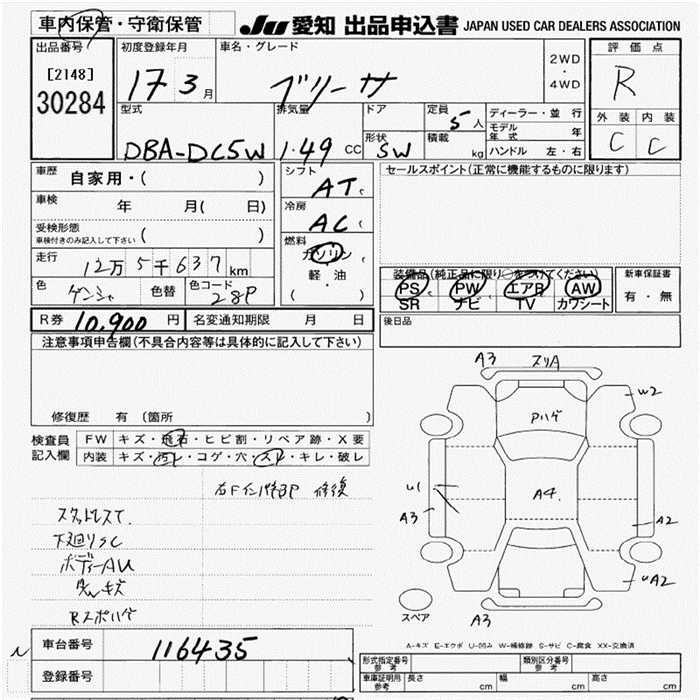 車内保管・守衛保管
JU 愛知 出品申込書 JAPAN USED CAR DEALERS ASSOCIATION
出品番号
[2148]
30284
初度登録年月
17 3 月
車名・グレード
2WD
・
4WD
評価点
R
外装 内装
C C
型式
DBA-DC5W
排気量
1.49 CC
ドア
形状
SW
定員
5 人
積載
kg
ディーラー・並行
モデル年式 年
ハンドル 左・右
車歴 自家用・( )
車検 年 月( 日)
受検形態
車検付きのみ記入して下さい ( )
走行 12万5千637km
色 色替 色コード 28P
シフト
AT
冷房
AC
燃料
ガソリン
軽・油
( )
セールスポイント(正常に機能するものに限ります)
装備品(純正品に限り○をつけてください)
PS PW エアB AW
SR ナビ TV カワシート
新車保証書
有・無
R券 10,900 円 名変通知期限 月 日
後日品
注意事項申告欄(不具合内容等は具体的に記入して下さい)
修復歴 有 (箇所 )
検査員
記入欄
FW キズ・飛石・ヒビ割・リペア跡・X要
内装 キズ・汚レ・コゲ・穴・スレ・キレ・破レ
右Fインパネ部 修復
スタッドレスT.
下廻りSC
ボディーAU
A3
スリA
W2
Pハゲ
U1
A3
A4.
A2
UA2
スペア
A3
A-キズ E-エクボ U-凹み W-補修跡 S-サビ C-腐食 XX-交換済
車台番号 116435
登録番号
形式指定番号
参考
類別区分番号
参考
車庫証明用
参考
長さ cm 幅 cm 高さ cm